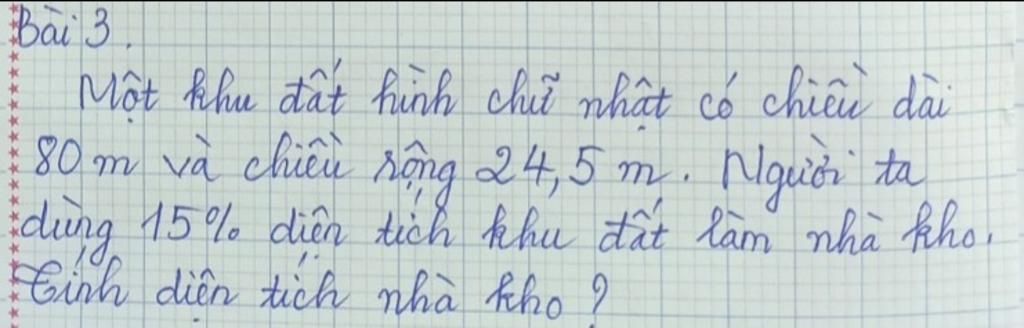 Bài 3.
Một khu đất hình chữ nhật có chiều dài
80 m và chiều rộng 24,5 m. Người ta
dùng 15% diện tích khu đất làm nhà kho.
Tính diện tích nhà kho ?